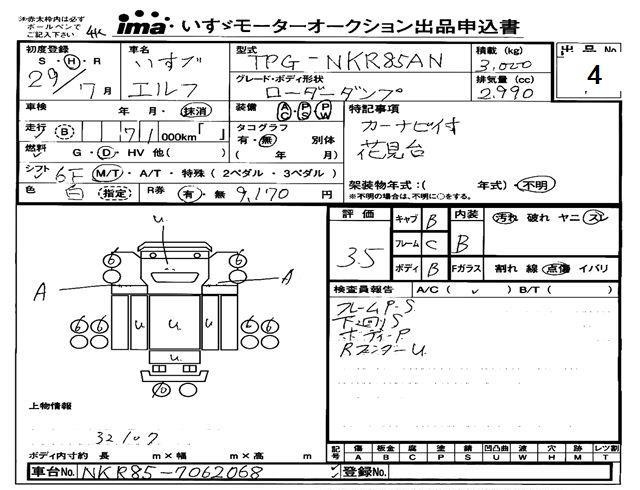 ※赤太枠内は必ず
ボールペンで
ご記入下さい
4K
ima いすゞモーターオークション出品申込書
初度登録 車名 型式 積載 (kg) 出品No
S・H・R いすゞ TPG-NKR85AN 3,000 4
29年 7月 エルフ グレード・ボディ形状 排気量 (cc)
ローダーダンプ 2,990
車検 年 月・抹消 装備 AC PS PW 特記事項
走行 B 71 000km「 」 タコグラフ カーナビ付
有・無 別体 花見台
燃料 G・D・HV 他( ) ( 年 月)
シフト 6F M/T・A/T・特殊(2ペダル・3ペダル) 架装物年式:( 年式)・不明
※不明の場合は、不明に○をする。
色 白 指定 R券 有・無 9,170 円
評価 キャブ B 内装 汚れ 破れ ヤニ スレ
3.5 フレーム C B
ボディ B Fガラス 割れ 線 点傷 イバリ
検査員報告 A/C( ✓ ) B/T( )
フレームP.S
下廻りS
ボディーP.
RフェンダーU.
u.
6 u 6
A A
u u u
u
6 6 6 6
10
上物情報
32107
ボディ内寸 約 長 m×幅 m×高 m
記号 傷 板金 腐 塗 錆 凹凸曲 波 穴 跡 レツ割
A B C P S U W H M T
車台No. NKR85-7062068 登録No.